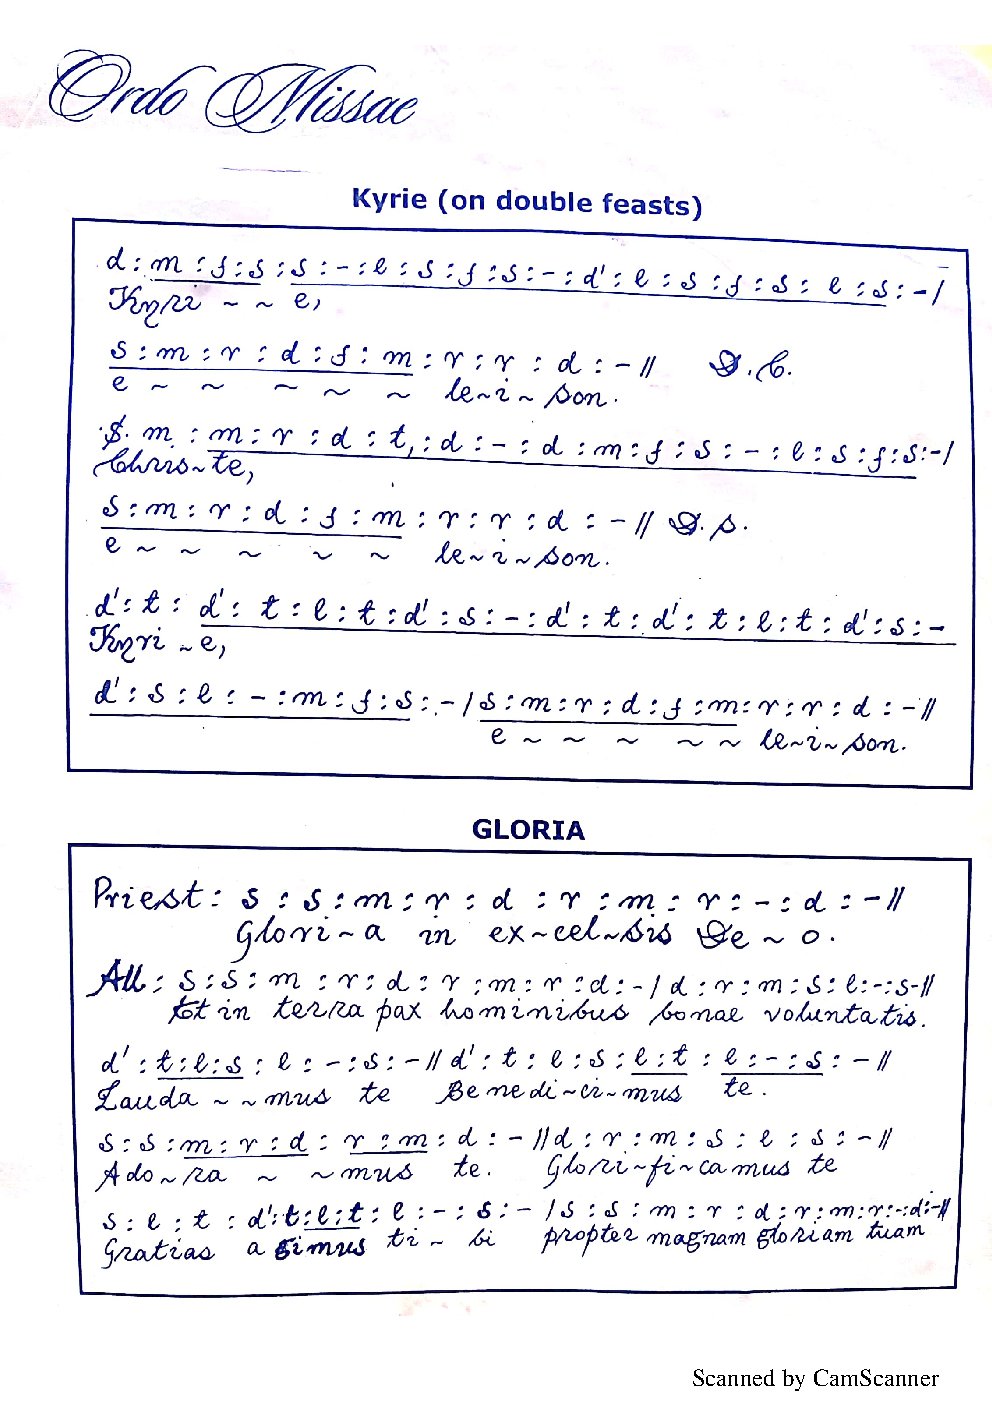 Ordo Missae
Kyrie (on double feasts)
d : m : f : s : s : - : l : s : f : s : - : d' : l : s : f : s : l : s : - /
Kyri ~ ~ e,
s : m : r : d : f : m : r : r : d : - // D.C.
e ~ ~ ~ ~ ~ le~i~son.
.$. m : m : r : d : t, : d : - : d : m : f : s : - : l : s : f : s : - /
Chris~te,
s : m : r : d : f : m : r : r : d : - // D.s.
e ~ ~ ~ ~ ~ le~i~son.
d' : t : d' : t : l : t : d' : s : - : d' : t : d' : t : l : t : d' : s : -
Kyri ~ e,
d' : s : l : - : m : f : s : - / s : m : r : d : f : m : r : r : d : - //
e ~ ~ ~ ~ ~ le~i~son.
GLORIA
Priest : s : s : m : r : d : r : m : r : - : d : - //
Glori~a in ex~cel~sis De ~ o.
All : s : s : m : r : d : r : m : r : d : - / d : r : m : s : l : - : s - //
Et in terra pax hominibus bonae voluntatis.
d' : t : l : s : l : - : s : - // d' : t : l : s : l : t : l : - : s : - //
Lauda ~ ~ mus te Benedi~ci~mus te.
s : s : m : r : d : r : m : d : - // d : r : m : s : l : s : - //
Ado~ra ~ ~ mus te. Glori~fi~camus te
s : l : t : d' : t : l : t : l : - : s : - / s : s : m : r : d : r : m : r : - : d : - //
Gratias a gimus ti ~ bi propter magnam gloriam tuam
Scanned by CamScanner